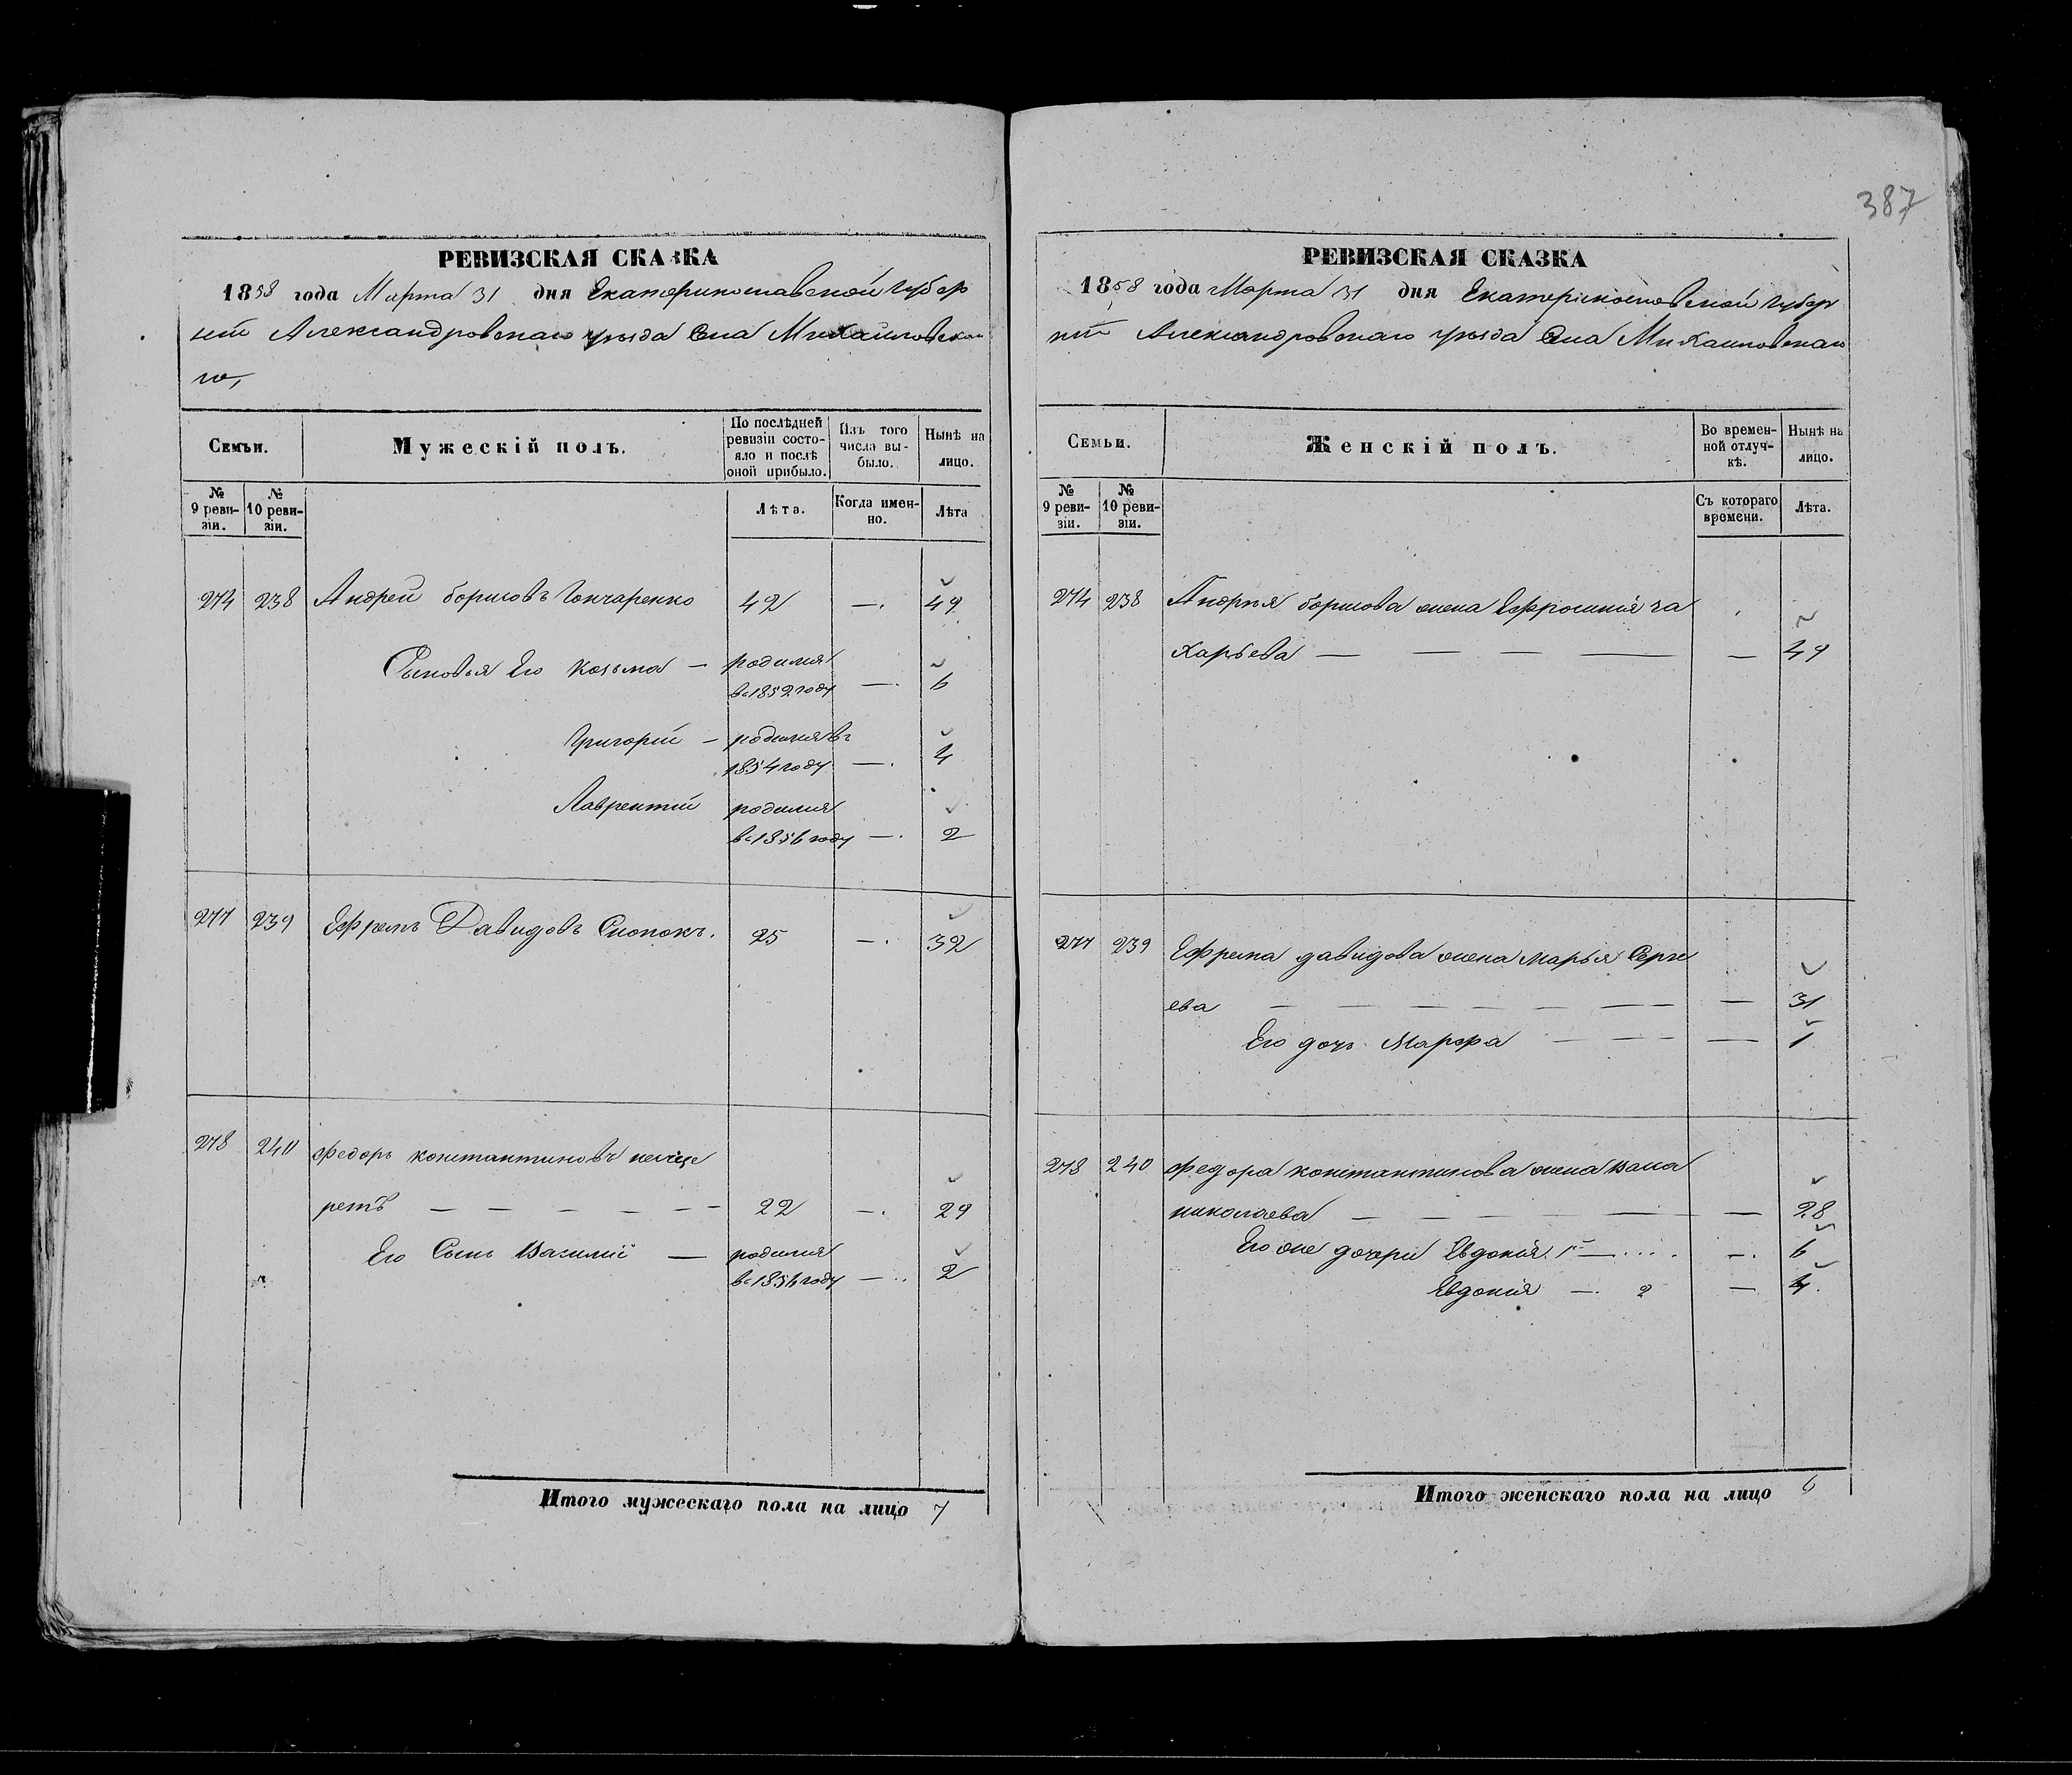 387
РЕВИЗСКАЯ СКАЗКА
1858 года Марта 31 дня Екатеринославской Губер
нии Александровскаго уезда Села Михайловска
го,
Семьи.
Мужескій полъ.
По послѣдней ревизіи состояло и послѣ оной прибыло.
Изъ того числа выбыло.
Нынѣ на лицо.
№ 9 ревизіи.
№ 10 ревизіи.
Лѣта.
Когда именно.
Лѣта
274 238 Андрей борисовъ Гончаренко 42 —. 49
Сыновья Его Козьма — родился
въ 1852 году —. 6
Григорій — родился въ
1854 году —. 4
Лаврентій родился
въ 1856 году —. 2
277 239 Ефремъ Давидовъ 25 —. 32
278 240 Федоръ константиновъ
ретъ — — — — — — 22 —. 29
Его Сынъ Василій — родился
въ 1856 году —. 2
Итого мужескаго пола на лицо 7
РЕВИЗСКАЯ СКАЗКА
1858 года Марта 31 дня Екатеринославской Губер
ніи Александровскаго уезда Села Михайловскаго
Семьи.
Женскій полъ.
Во временной отлучкѣ.
Нынѣ на лицо.
№ 9 ревизіи.
№ 10 ревизіи.
Съ котораго времени.
Лѣта.
274 238 Андрея борисова жена Ефросинія за
харьева — — — — — 49
277 239 Ефрема давидова жена марья Серге
ева — — — — — — — 31
Его дочь Марфа — — — — 1
278 240 Федора константинова жена
николаева — — — — — — 28
Его же дочери Евдокія 1 — —. 6
Евдокія —. 2 — 4.
Итого женскаго пола на лицо 6